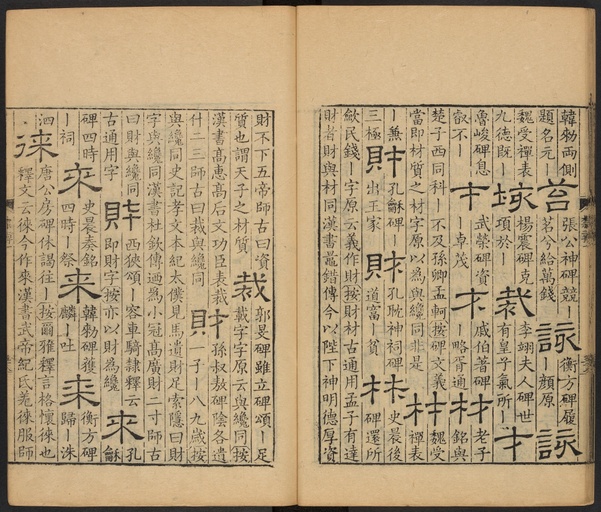 韓勑兩側
題名元丨
苔
張公神碑競丨
茗兮給萬錢
詠
衡方碑履
丨顏原
詠
魏受禪表
九德既丨
楊震碑克
項於丨
裁
李翊夫人碑世
有皇子氣所丨
才
魯峻碑息
叡不丨
才
武榮碑資
丨卓茂
才
戚伯著碑
丨略胥通
材
老子
銘與
楚子西同科丨不及孫卿孟軻按碑文義
當即材質之材字原以為與纔同非是
材
魏受
禪表
丨無
三極
財
孔龢碑
出王家
財
孔耽神祠碑
道富丨貧
材
史晨後
碑還所
歛民錢丨字原云義作財按財材古通用孟子有達
財者財與材同漢書鼂錯傳今以陛下神明德厚資
財不下五帝師古曰資
質也謂天子之材質
裁
郭旻碑雖立碑頌丨足
載字字原云與纔同按
漢書高惠高后文功臣表裁
什二三師古曰裁與纔同
財
孫叔敖碑陰各遺
一子丨八九歲按
與纔同史記孝文本紀太僕見馬遺財足索隱曰財
字與纔同漢書杜欽傳迺為小冠高廣財二寸師古
曰財與纔同
古通用字
財
西狹頌丨容車騎隸釋云
即財字按亦以財為纔
來
孔
龢
碑四時
丨祠
來
史晨奏銘
四時丨祭
來
韓勑碑獲
麟丨吐
來
衡方碑
歸丨洙
泗
徠
唐公房碑休謁往丨按爾雅釋言格懷徠也
釋文云徠今作來漢書武帝紀氐羌徠服師